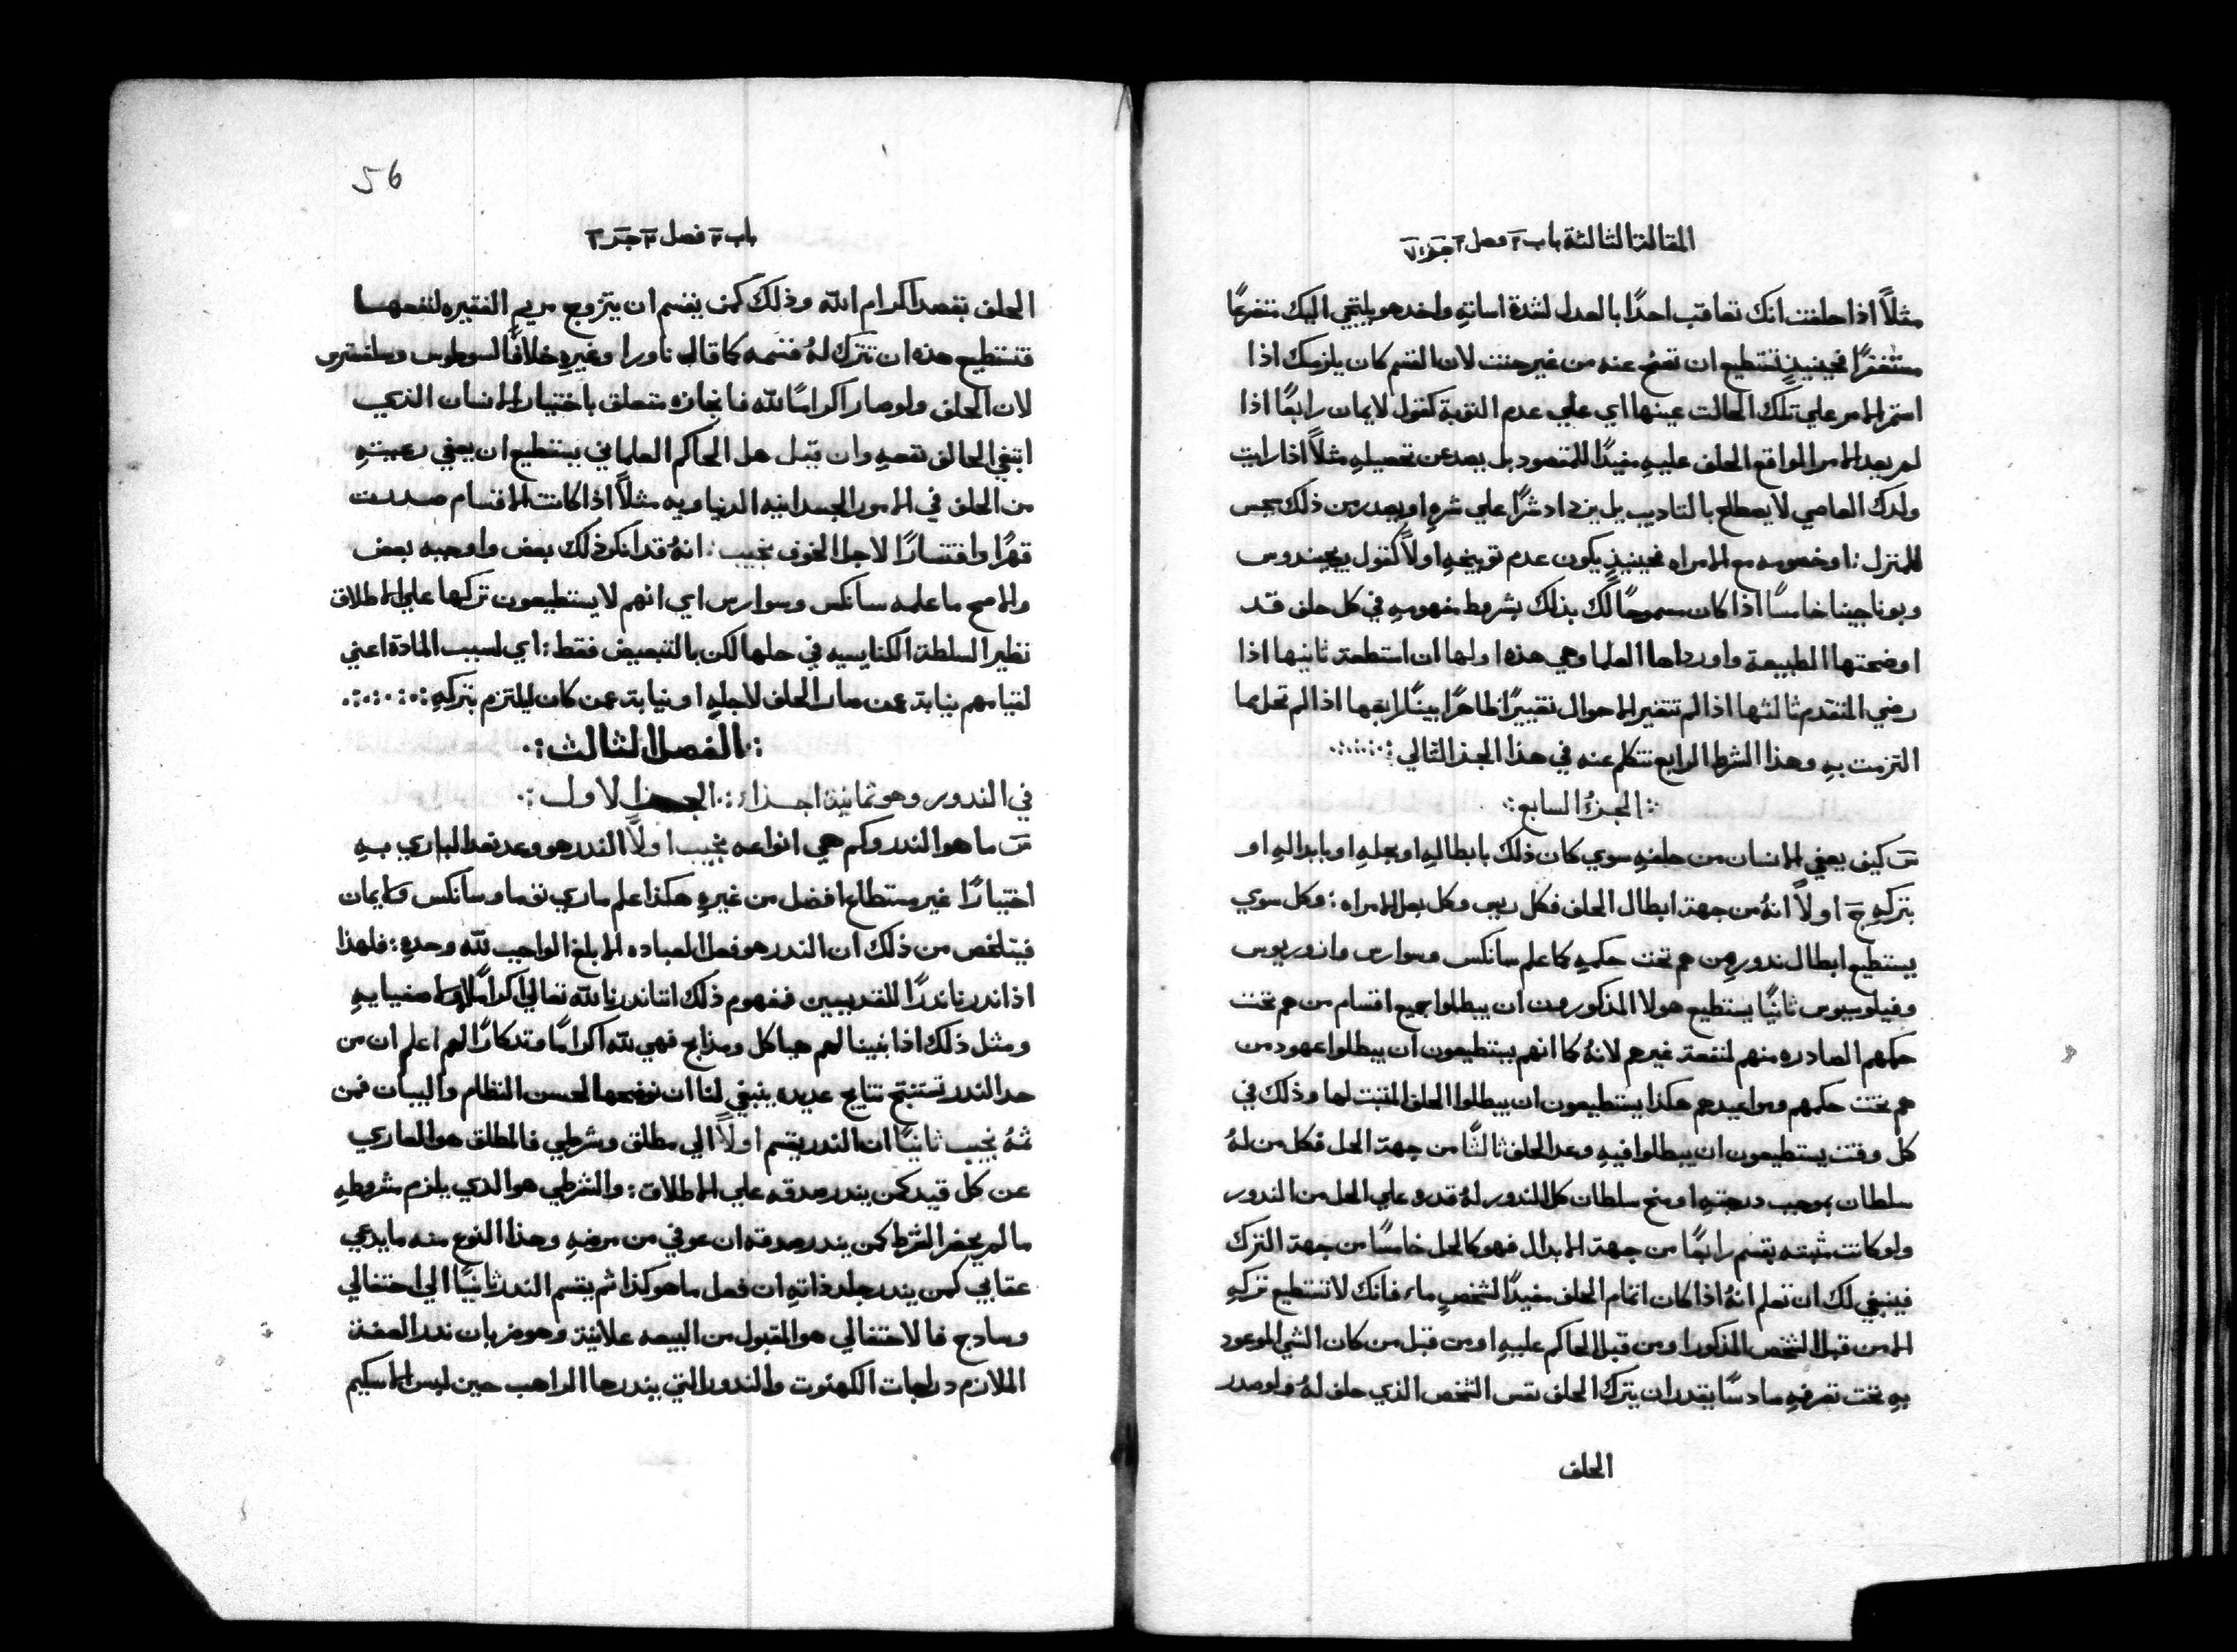 المقالة الثالثة باب ٢ فصل ٢ جزء ٧
مثلاً اذا حلفت انك تعاقب احدًا بالعدل لشدة اساتهِ واخد هو يلتجي اليك متضرعًا
مستغفرًا فحينيذٍ تستطيع ان تصفح عنه من غير حنث لان القسم كان يلزمك اذا
استمر الامر علي تلك الحالت عينها اي علي عدم التوبة كقول لايمان رابعًا اذا
لم يعد الامر الواقع الحلف عليهِ مفيدًا للمقصود بل يصد عن تحصيلهِ مثلاً اذا رايت
ولدك العاصي لا يصطلح بالتاديب بل يزداد شرًا علي شرهِ او يصدر من ذلك سجس
للمنزل : او خصومه مع الامراه فحينيذٍ يكون عدم توبيخهِ اولاً كقول يجيندوس
وبوناجينا خامسًا اذا كان مسموحًا لك بذلك بشروط مفهومهِ في كل حلف قد
اوضحتها الطبيعة واوردها العلما وهي هذه اولها ان استطعت ثانيها اذا
رضي المتقدم ثالثها اذا لم تتغير الاحوال تغييرًا ظاهرًا بينًا رابعها اذا لم تحل مما
التزمت بهِ وهذا الشرط الرابع نتكلم عنه في هذا الجز التالي
الجزءُ السابع
س كيف يعفي الانسان من حلفهِ سوي كان ذلك بابطالهِ او بحلهِ او بابدالهِ او
بتركهِ ج اولاً انهُ من جهة ابطال الحلف فكل ريس وكل بعل الامراه : وكل سوي
يستطيع ابطال ندور من هم تحت حكمهِ كما علم سانكس وسوارس وازوريوس
وفيلوسيوس ثانيًا يستطيع هولا المذكورون ان يبطلوا جميع اقسام من هم تحت
حكمهم الصادره منهم لمنفعة غيرهم لانهُ كما انهم يستطيعون ان يبطلوا عهود من
هم تحت حكمهم ومواعيدهم هكذا يستطيعون ان يبطلوا الحلف المثبت لها وذلك في
كل وقت يستطيعون ان يبطلوا فيهِ وعد الحلف ثالثًا من جهة الحل فكل من لهُ
سلطان بموجب درجتهِ او منح سلطان كل الندور لهُ قدره علي الحل من الندور
ولو كانت مثبته بقسم رابعًا من جهة الابدال فهو كالحل خامسًا من جهة الترك
فينبغي لك ان تعلم انهُ اذا كان اتمام الحلف مفيدًا لشخصٍ ما فانك لا تستطيع تركهِ
الا من قبل الشخص المذكور او من قبل الحاكم عليهِ او من قبل من كان الشي الموعود
بهِ تحت تصرفهِ سادسًا يقدر ان يترك الحلف نفس الشخص الذي حلف لهُ ولو صدر
الحلف
56
باب ٢ فصل ٣ جزء ٢
الحلف بقصد اكرام الله وذلك كمن يقسم ان يتزوج مريم الفقيره لنفعها
فتستطيع هذه ان تترك لهُ قسمه كما قال ناورا وغيره خلافًا لسوطوس وسلفسترس
لان الحلف ولو صار اكرامًا لله فانجازه متعلق باختيار الانسان الذي
ابتغي الحالف نفعهِ وان قيل هل الحاكم العلماني يستطيع ان يعفي رعيتهِ
من الحلف في الامور الجسدانيه الدنياويه مثلاً اذا كانت الاقسام صدرت
قهرًا واقتسارًا لاجل الخوف نجيب : انهُ قد انكر ذلك بعض واوجبه بعض
والاصح ما علمه سانكس وسوارس اي انهم لا يستطيعون تركها علي الاطلاق
نظير السلطة الكنايسيه في حلها لكن بالتبعيض فقط : اي لسبب المادة اعني
لقيامهم بنيابة عمن صار الحلف لاجلهِ او نيابة عمن كان ليلتزم بتركهِ
الفصل الثالث
في الندور وهو ثمانية اجزاء : الجزء الاول
س ما هو الندر وكم هي انواعه نجيب اولاً الندر هو وعد نعد الباري بهِ
اختيارًا غير مستطاع افضل من غيرهِ هكذا علم ماري توما وسانكس ولايمان
فيتلخص من ذلك ان الندر هو فعل العباده الابلغ الواجب لله وحدهِ : فلهذا
اذا ندرنا ندرًا للقديسين فمفهوم ذلك اننا ندرنا لله تعالي اكرامًا لاصفيايهِ
ومثل ذلك اذا بنينا لهم هياكل ومذابح فهي لله اكرامًا وتدكارًا لهم اعلم ان من
حد الندر تستنتج نتايج عديده ينبغي لنا ان نوضحها لحسن النظام والبيان فمن
ثمهُ نجيب ثانيًا ان الندر يقسم اولاً الي مطلق وشرطي فالمطلق هو العاري
عن كل قيد كمن يندر صدقه علي الاطلاق : والشرطي هو الدي يلزم مشروطهِ
ما لم يحضر الشرط كمن يندر صدقه ان عوفي من مرضهِ وهذا النوع منه ما يدعي
عقابي كمن يندر جلد ذاتهِ ان فعل ما هو كذا ثم يقسم الندر ثانيًا الي احتفالي
وسادج فالاحتفالي هو المقبول من البيعه علانية وهو ضربان ندر العفة
الملازم درجات الكهنوت والندور التي يندرها الراهب حين لبس الاسكيم